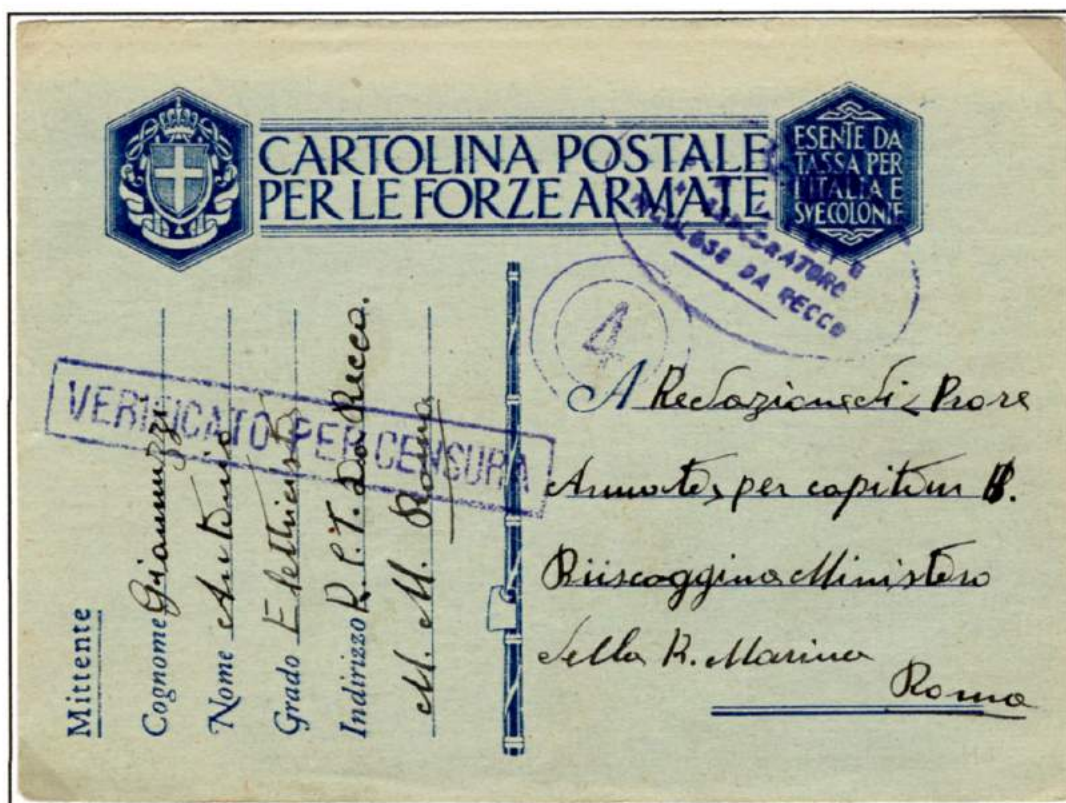 CARTOLINA POSTALE
PER LE FORZE ARMATE
ESENTE DA
TASSA PER
L'ITALIA E
SVE COLONIE
DA RECCO
4
VERIFICATO PER CENSURA
Mittente
Cognome Giannuzzi
Nome Antonio
Grado Elettricista
Indirizzo R.C.T. Da Recco.
M. M. Roma
A Redazione di Prore
Armate, per capitan B.
Ministero
della R. Marina
Roma